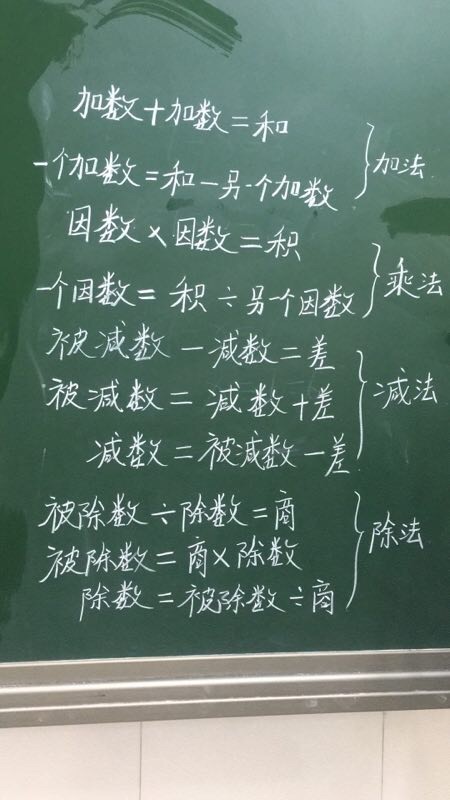 加数+加数=和
一个加数=和-另一个加数
加法
因数×因数=积
一个因数=积÷另一个因数
乘法
被减数-减数=差
被减数=减数+差
减数=被减数-差
减法
被除数÷除数=商
被除数=商×除数
除数=被除数÷商
除法